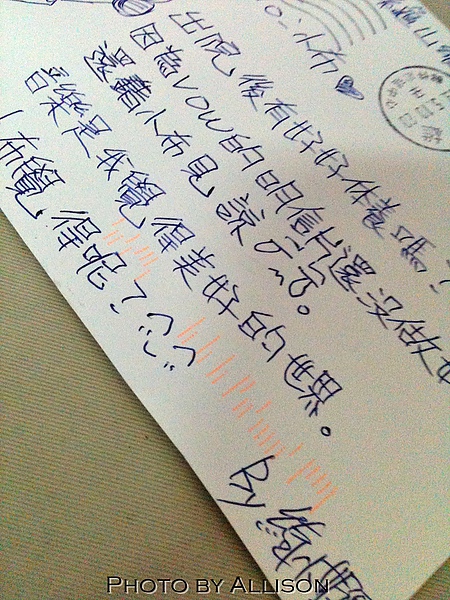 小布♥
出院後有好好休養嗎？
因為vow的明信片還沒做好
還請小布見諒
音樂是我覺得美好的世界。
小布覺得呢？^^
By
PHOTO BY ALLISON